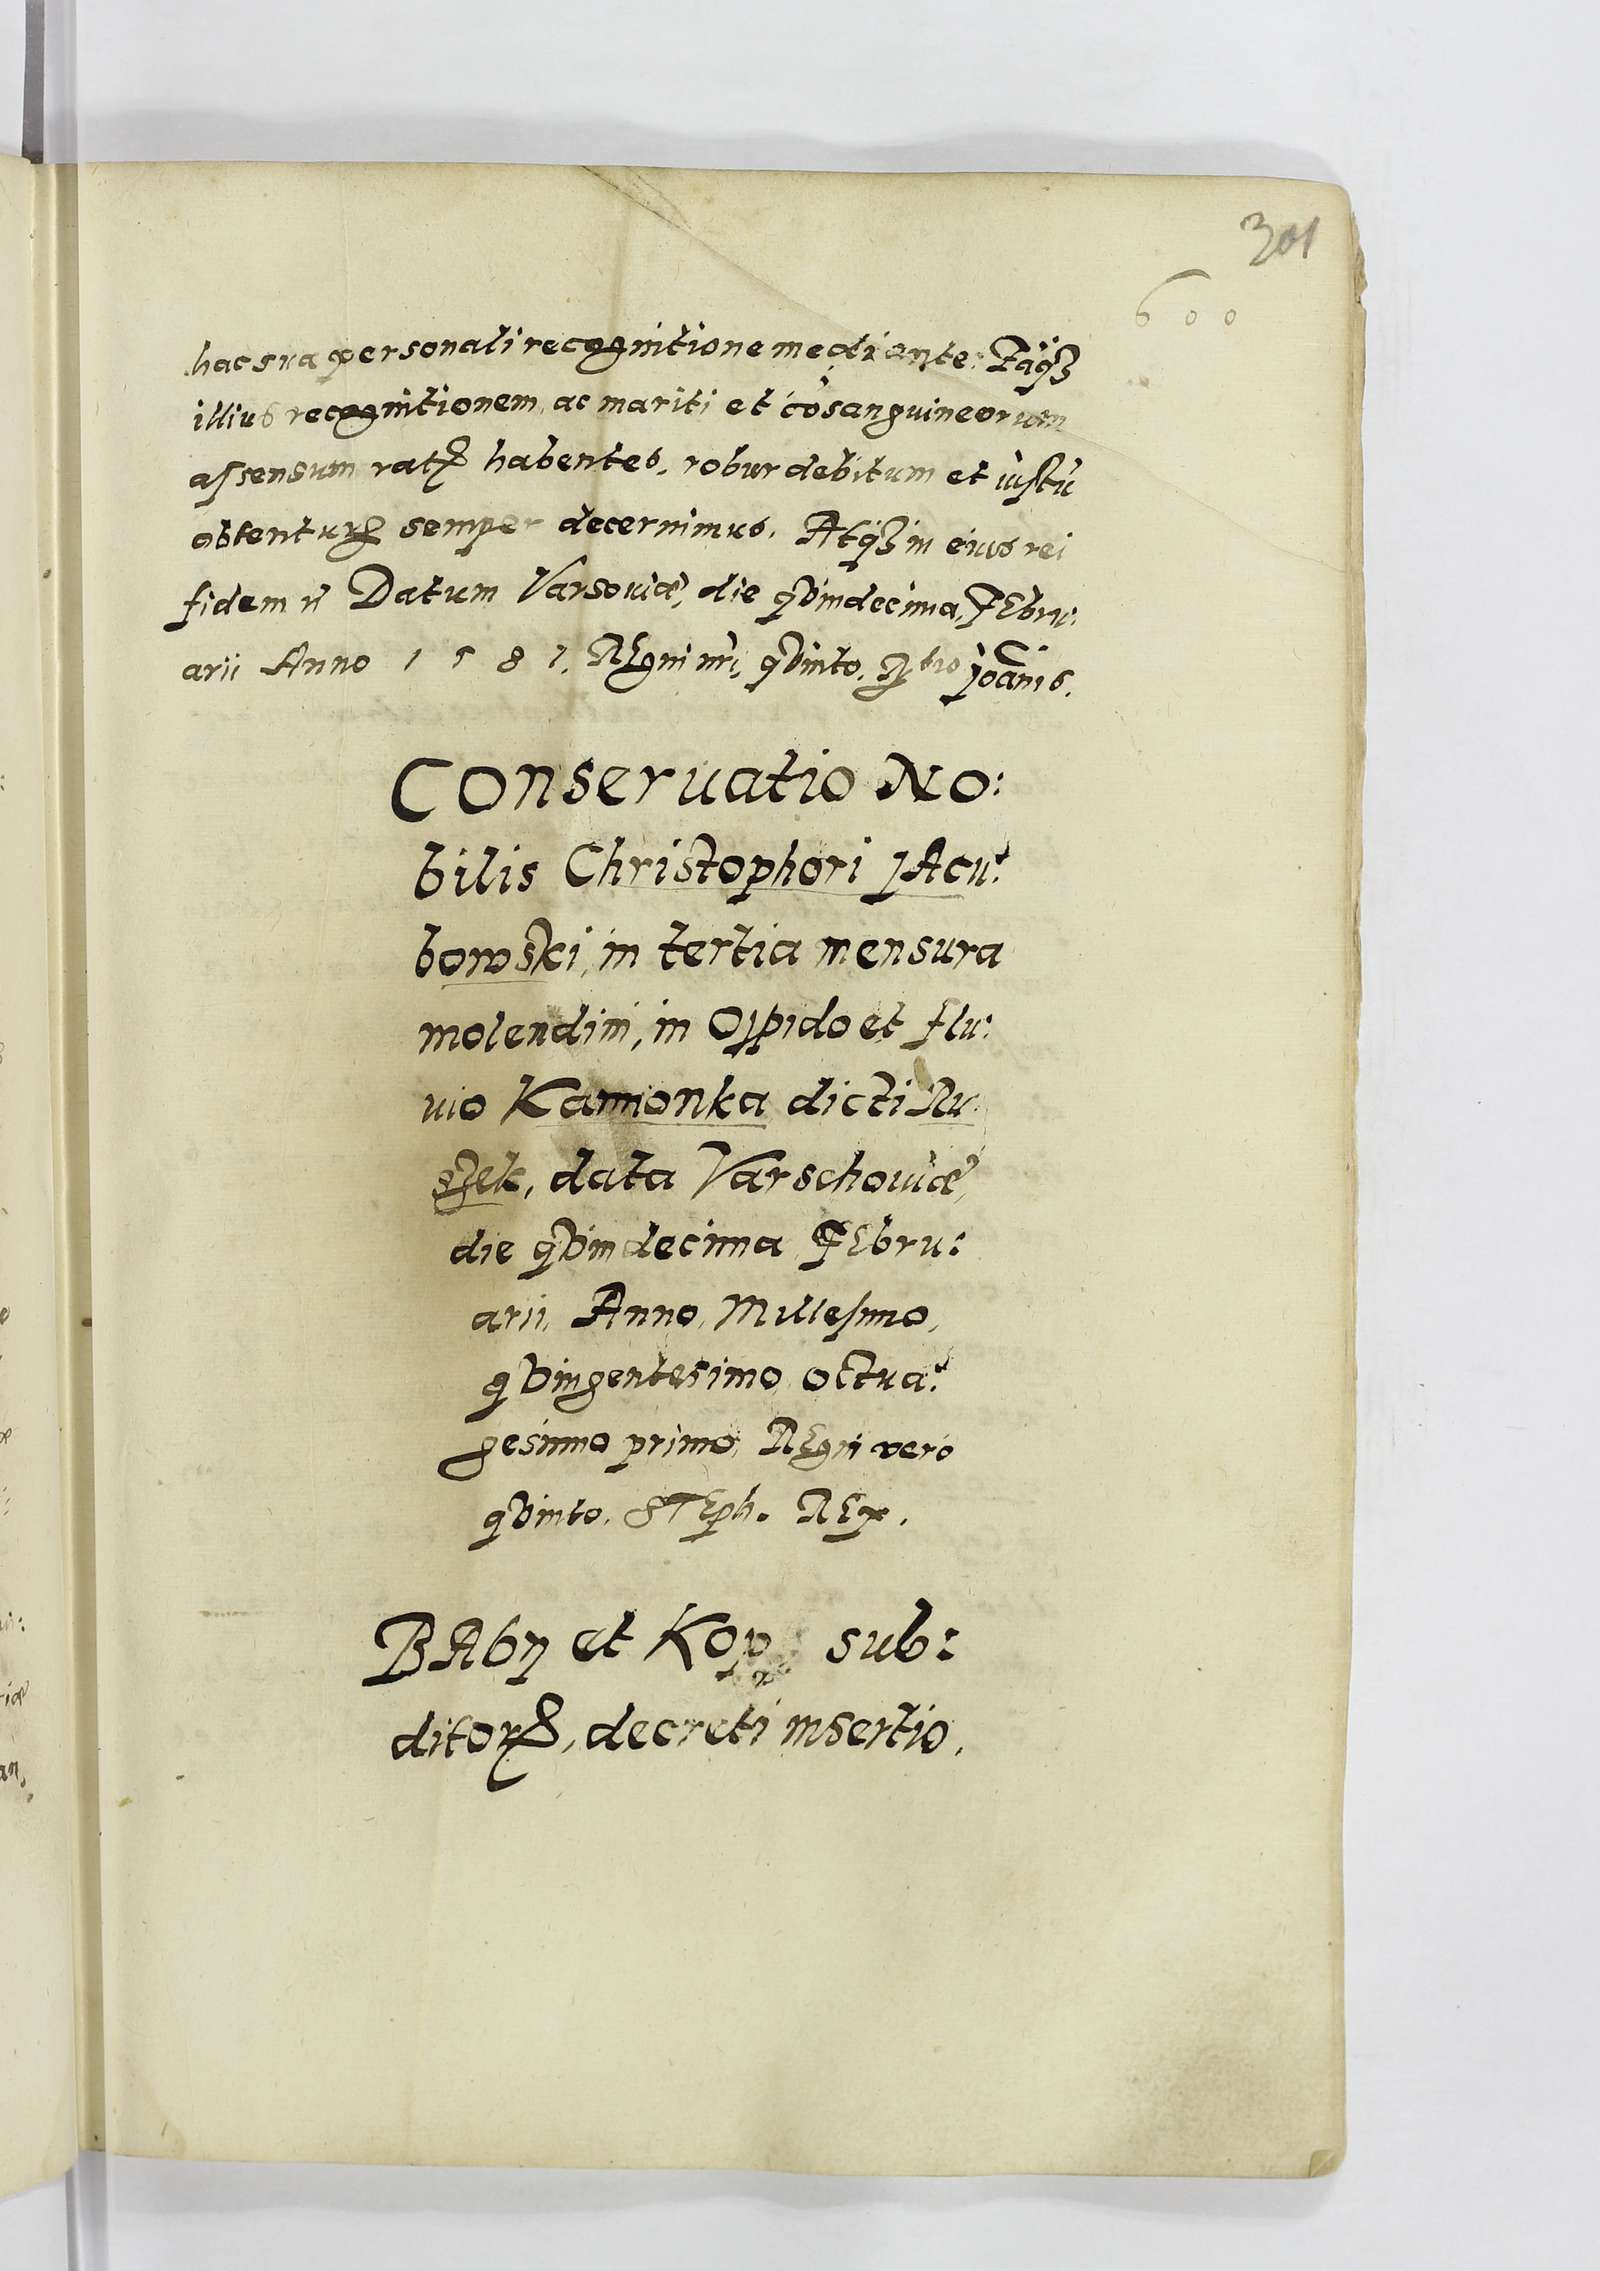 301
600
hac sua personali recognitione mediante. Eaqꝫ
illius recognitionem, ac mariti et cōsanguineorum
assensum ratꝝ habentes, robur debitum et iustū
obtenturꝝ semper decernimus. Atqꝫ in eius rei
fidem ñ Datum Varsouiæ, die qVindecima, FEbru:
arii Anno 1581, REgni nr̄i, qVinto. Joānis.
Conseruatio No:
bilis Christophori JAcu:
bowski, in tertia mensura
molendini, in Oppido et flu:
uio Kamionka dicti Ru
szek, data Varschouiæ,
die qVindecima FEbru:
arii, Anno, Millesimo,
qVingentesimo octua:
gesimo primo, REgni vero
qVinto. STEph. REx.
BAby et Kop sub:
ditorꝝ, decreti insertio.